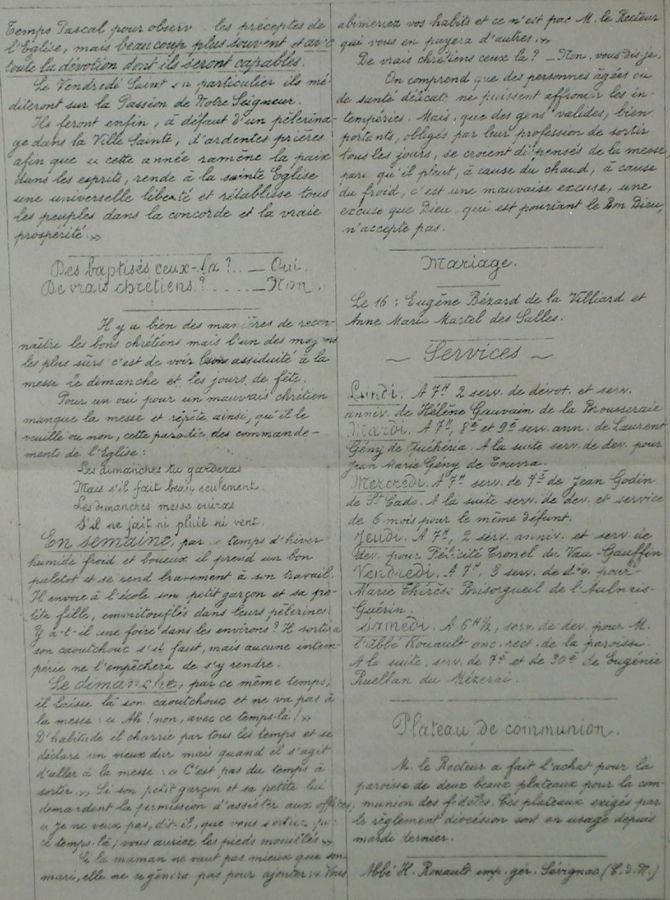 Temps Pascal pour observer les préceptes de
l'Eglise, mais beaucoup plus souvent et avec
toute la dévotion dont ils seront capables.
Le Vendredi Saint en particulier ils mé-
diteront sur la Passion de Notre Seigneur.
Ils feront enfin, à défaut d'un pèlerina-
ge dans la Ville Sainte, d'ardentes prières
afin que « cette année ramène la paix
dans les esprits, rende à la sainte Eglise
une universelle liberté et rétablisse tous
les peuples dans la concorde et la vraie
prospérité »
Des baptisés ceux-là ?.. — Oui.
De vrais chrétiens ? ..... — Non.
Il y a bien des manières de recon-
naître les bons chrétiens mais l'un des moyens
les plus sûrs c'est de voir leur assiduité à la
messe le dimanche et les jours de fête.
Pour un oui pour un non mauvais chrétien
manque la messe et répète ainsi, qu'il le
veuille ou non, cette parodie des commande-
ments de l'Eglise :
Les dimanches tu garderas
Mais s'il fait beau seulement.
Les dimanches messe ouïras
S'il ne fait ni pluie ni vent.
En semaine, par ce temps d'hiver
humide froid et boueux il prend un bon
paletot et se rend bravement à son travail.
Il envoie à l'école son petit garçon et sa pe-
tite fille, emmitouflés dans leurs pèlerines.
Y a-t-il une foire dans les environs ? Il sortira
son caoutchouc s'il faut, mais aucune intem-
périe ne l'empêchera de s'y rendre.
Le dimanche, par ce même temps,
il laisse là son caoutchouc et ne va pas à
la messe : « Ah ! non, avec ce temps-là ! »
D'habitude il charrie par tous les temps et se
déclare un vieux dur mais quand il s'agit
d'aller à la messe : « C'est pas du temps à
sortir » Si son petit garçon et sa petite lui
demandent la permission d'assister aux offices,
« Je ne veux pas, dit-il, que vous sortiez par
ce temps-là, vous auriez les pieds mouillés »
Et la maman ne vaut pas mieux que son
mari, elle ne se gênera pas pour ajouter « Vous
abimeriez vos habits et ce n'est pas M. le Recteur
qui vous en payera d'autres. »
De vrais chrétiens ceux là ? — Non, vous dis-je.
On comprend que des personnes âgées ou
de santé délicate ne puissent affronter les in-
tempéries. Mais, que des gens valides, bien
portants, obligés par leur profession de sortir
tous les jours, se croient dispensés de la messe
parce qu'il pleut, à cause du chaud, à cause
du froid, c'est une mauvaise excuse, une
excuse que Dieu, qui est pourtant le Bon Dieu
n'accepte pas.
Mariage.
Le 16 : Eugène Bézard de la Villiard et
Anne Marie Martel des Salles.
~ Services ~
Lundi. A 7h 2 serv. de dévot. et serv.
anniv. de Hélène Gauvain de la Brousseraie
Mardi. A 7h, 8e et 9e serv. ann. de Laurent
Gény de Quéhéria. A la suite serv. de dev. pour
Jean Marie Gény de
Mercredi. A 7h serv. de 7e de Jean Godin
de St Cado. A la suite serv. de dev. et service
de 6 mois pour le même défunt.
Jeudi. A 7h, 2 serv. anniv. et serv. de
dev. pour Félicité Tronel du Vau-Gauffin
Vendredi. A 7h, 3 serv. de d° pour
Marie Thérèse Boisorgueil de l'Aulnais-
Guérin.
Samedi. A 6h ½, serv. de dev. pour M.
l'abbé Rouault anc. rect. de la paroisse.
A la suite, serv. de 7e et de 30e de Eugénie
Ruellan du Mézerai.
Plateau de communion.
M. le Recteur a fait l'achat pour la
paroisse de deux beaux plateaux pour la com-
munion des fidèles. Ces plateaux exigés par
le règlement diocésain sont en usage depuis
mardi dernier.
Abbé H. Rouault imp. gér. Sévignac (C.d.N.)